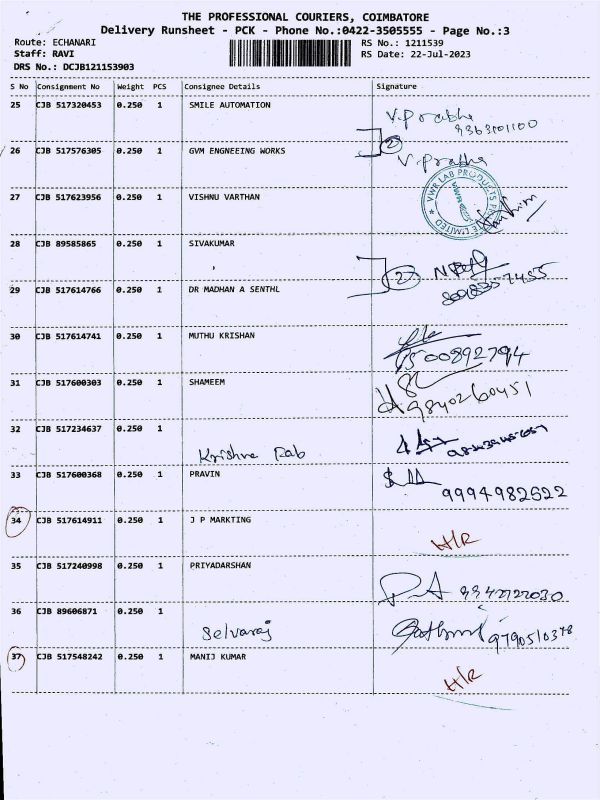 THE PROFESSIONAL COURIERS, COIMBATORE
Delivery Runsheet - PCK - Phone No.:0422-3505555 - Page No.:3
Route: ECHANARI
Staff: RAVI
DRS No.: DCJB121153903
RS No.: 1211539
RS Date: 22-Jul-2023
S No Consignment No Weight PCS Consignee Details Signature
25 CJB 517320453 0.250 1 SMILE AUTOMATION V.Prabha
9363101100
26 CJB 517576305 0.250 1 GVM ENGNEEING WORKS 2 V.Prabha
27 CJB 517623956 0.250 1 VISHNU VARTHAN VWR LAB PRODUCTS PRIVATE LIMITED
28 CJB 89585865 0.250 1 SIVAKUMAR 2
29 CJB 517614766 0.250 1 DR MADHAN A SENTHL
30 CJB 517614741 0.250 1 MUTHU KRISHAN
7500892794
31 CJB 517600303 0.250 1 SHAMEEM
9840260451
32 CJB 517234637 0.250 1 Krishna Fab
33 CJB 517600368 0.250 1 PRAVIN
9994982522
34 CJB 517614911 0.250 1 J P MARKTING H/R
35 CJB 517240998 0.250 1 PRIYADARSHAN 9942722030
36 CJB 89606871 0.250 1 Selvaraj 9790510378
37 CJB 517548242 0.250 1 MANIJ KUMAR H/R